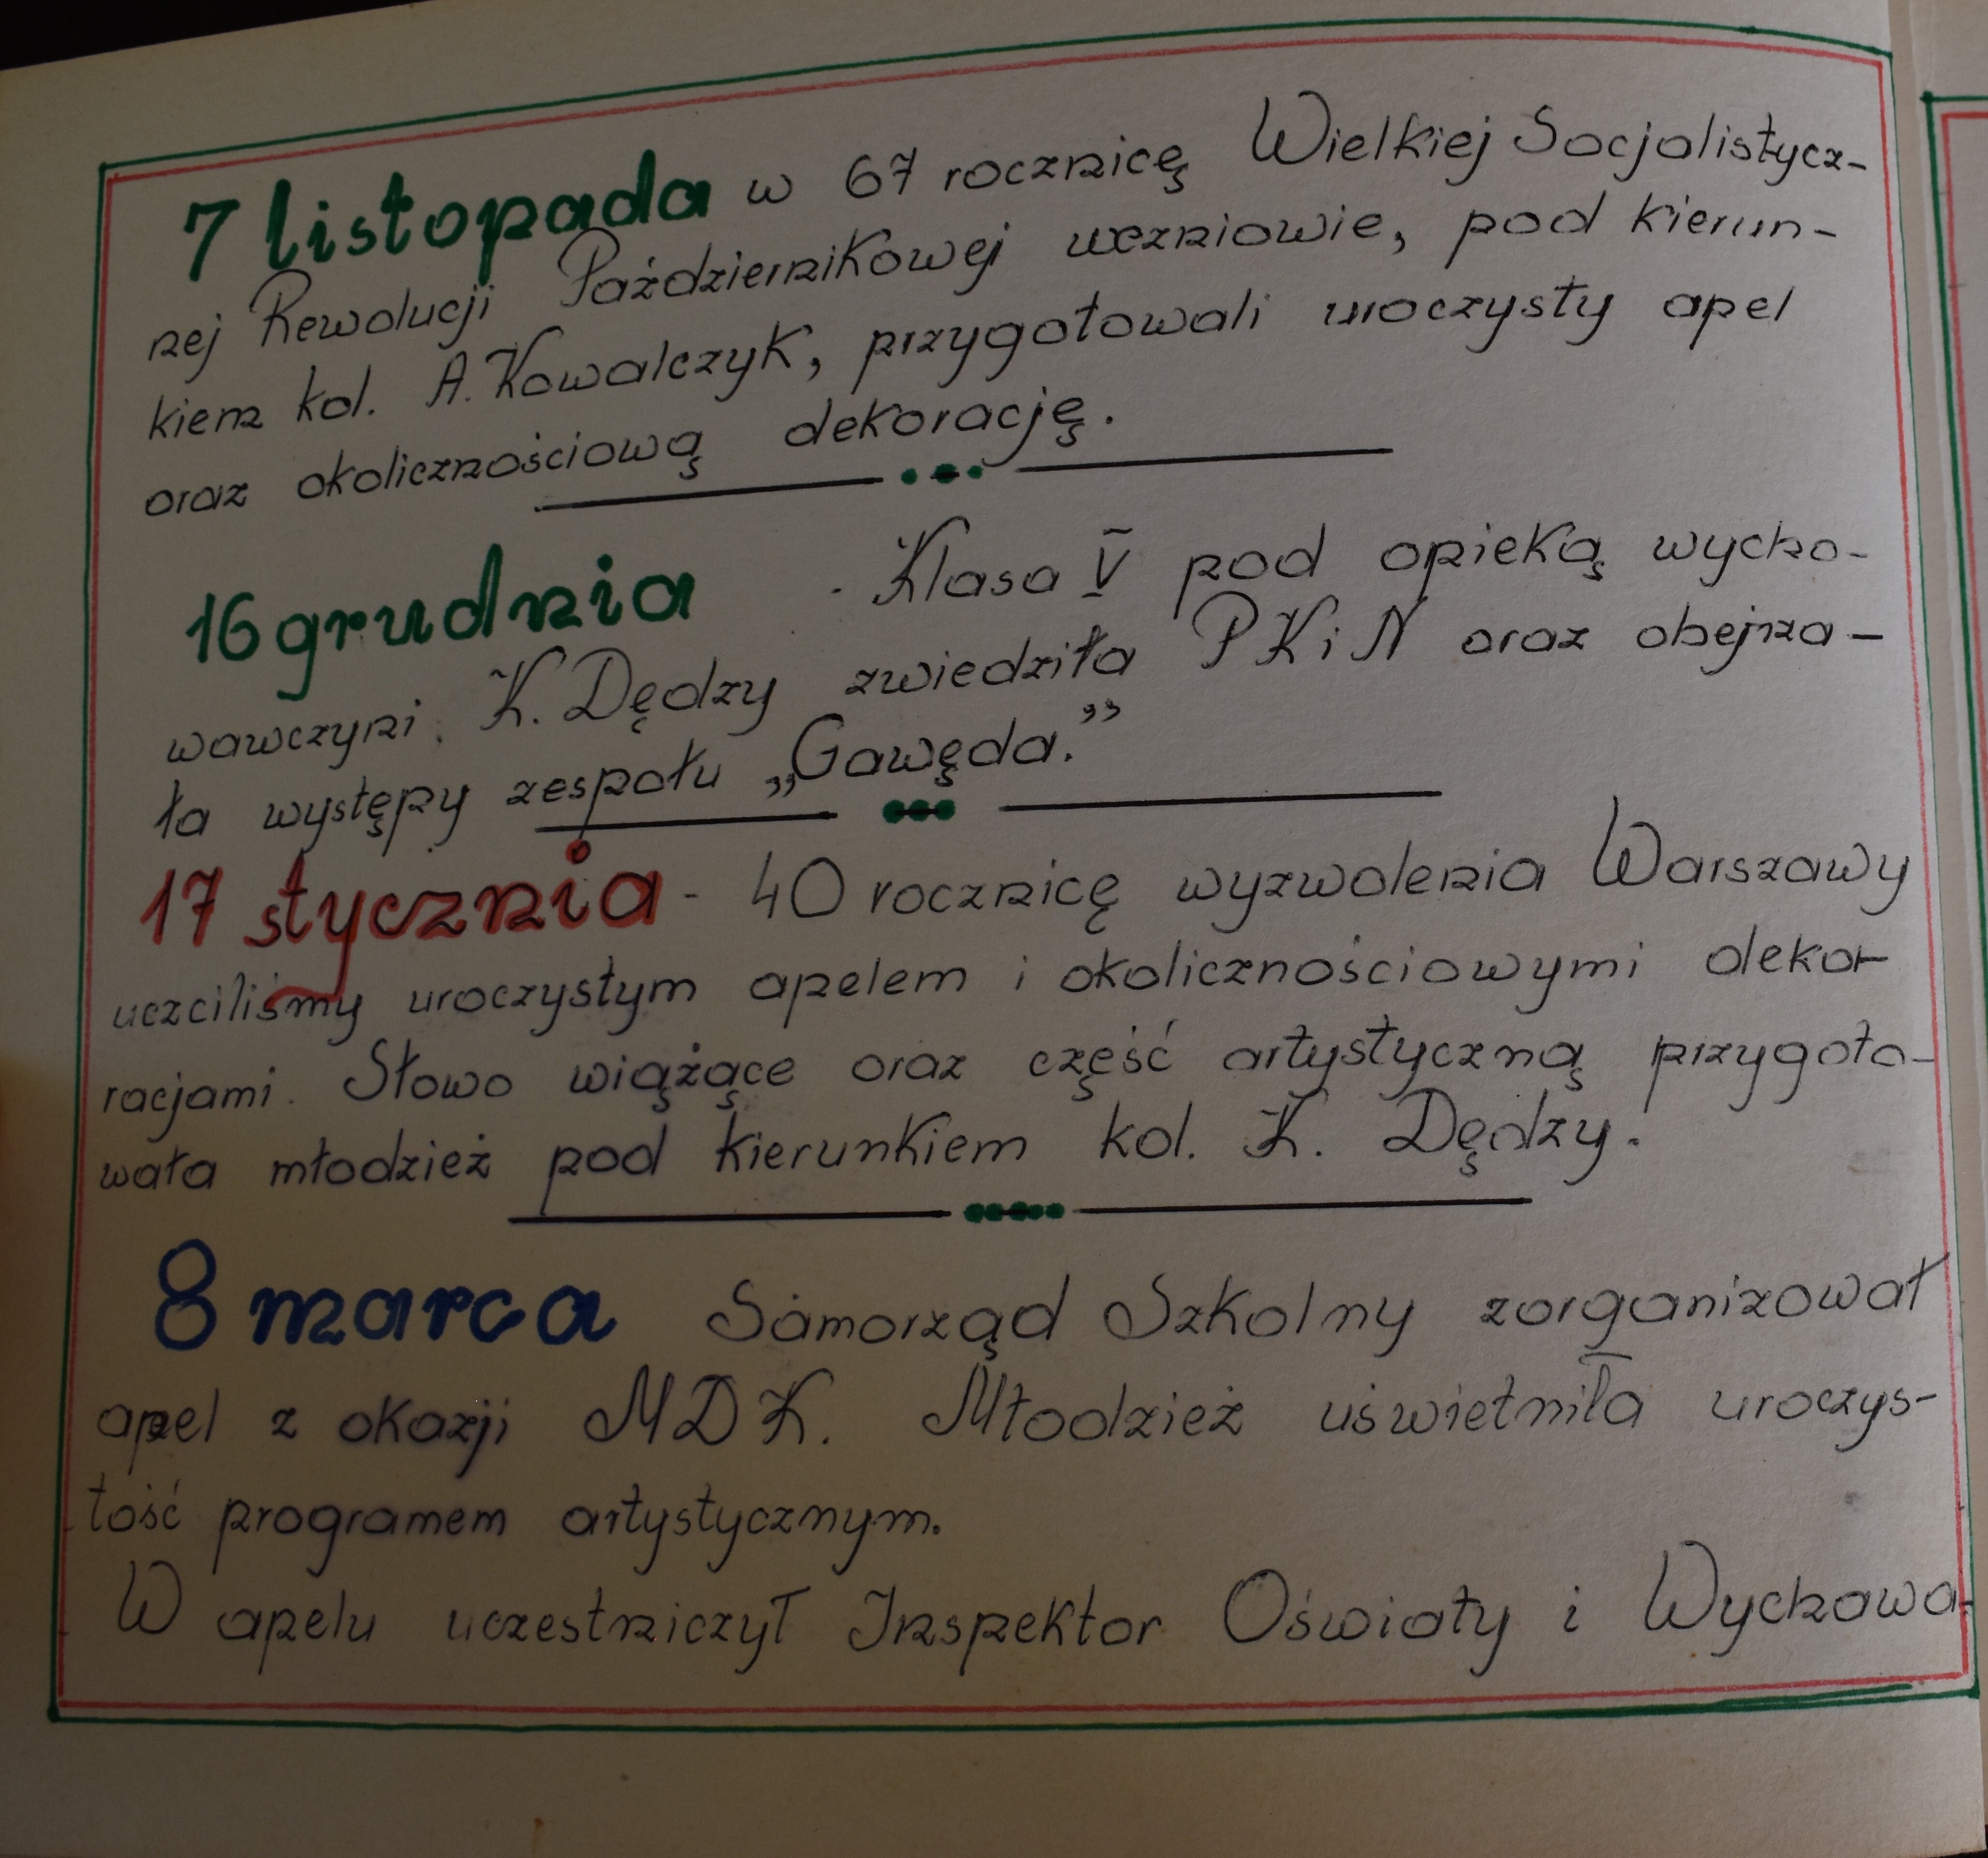 7 listopada w 67 rocznicę Wielkiej Socjalistycz-
nej Rewolucji Październikowej uczniowie, pod kierun-
kiem kol. A. Kowalczyk, przygotowali uroczysty apel
oraz okolicznościową dekorację.
16 grudnia - Klasa V pod opieką wycho-
wawczyni K. Dędzy zwiedziła PKiN oraz obejrza-
ła występy zespołu „Gawęda.”
17 stycznia - 40 rocznicę wyzwolenia Warszawy
uczciliśmy uroczystym apelem i okolicznościowymi dekor-
racjami. Słowo wiążące oraz część artystyczną przygoto-
wała młodzież pod kierunkiem kol. K. Dędzy.
8 marca Samorząd Szkolny zorganizował
apel z okazji MDK. Młodzież uświetniła uroczys-
tość programem artystycznym.
W apelu uczestniczył Inspektor Oświaty i Wychowa-